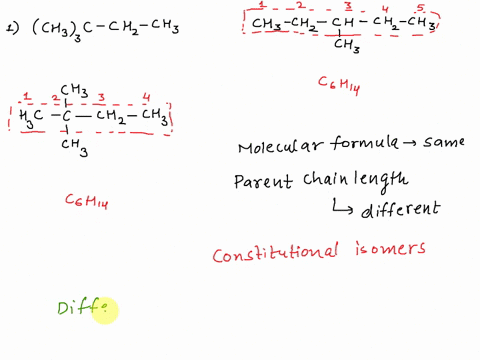 1) (CH3)3C-CH2-CH3
1 2 3 4 5
CH3-CH2-CH-CH2-CH3
CH3
C6H14
CH3
1 2 3 4
H3C-C-CH2-CH3
CH3
C6H14
Molecular formula → same
Parent Chain length
↳ different
Constitutional isomers
Diffe